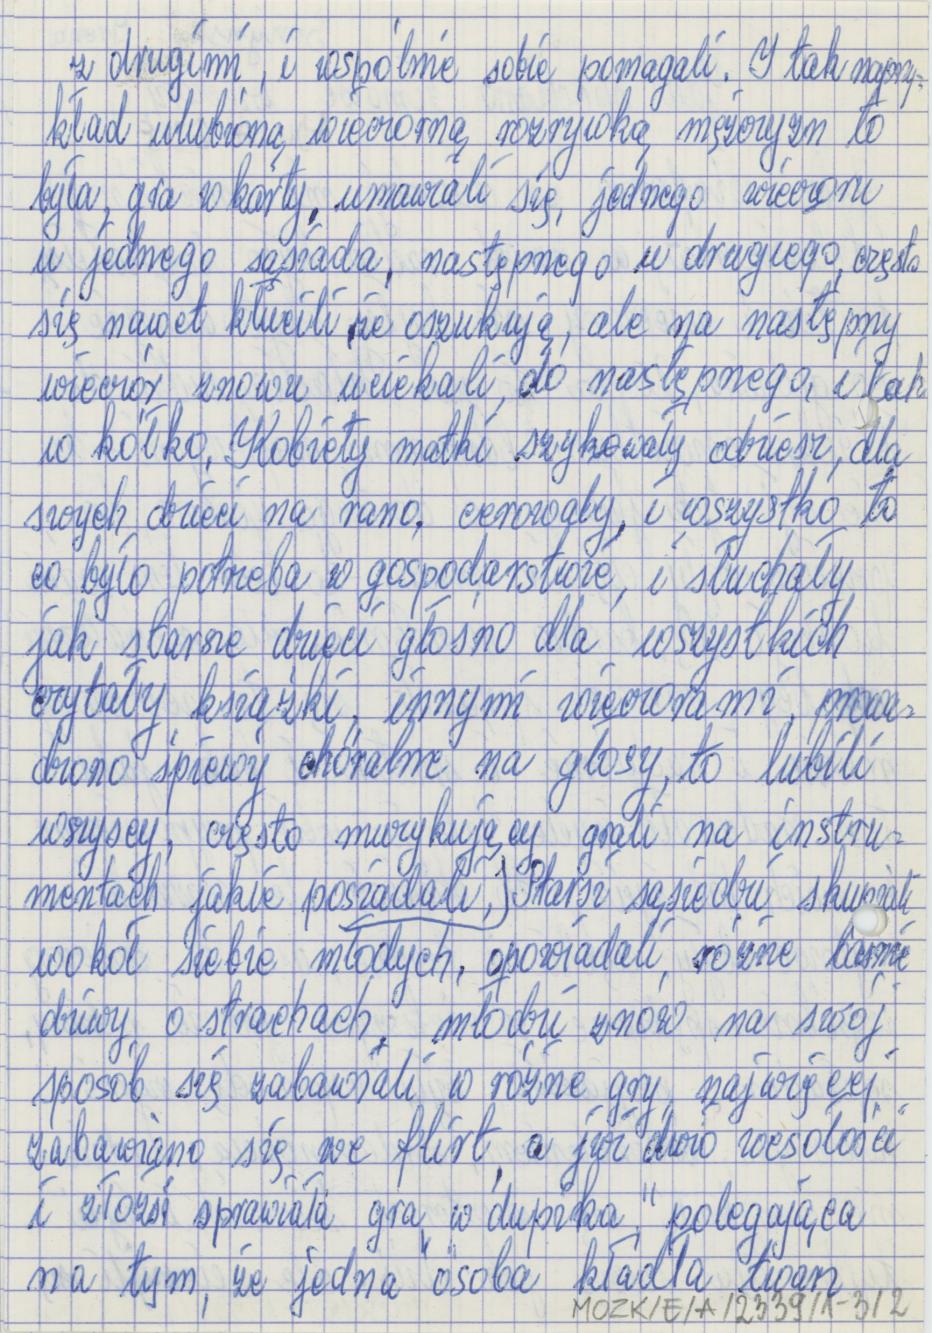 z drugimi, i wspólnie sobie pomagali. I tak naprzy-
kład ulubioną wieczorną rozrywką mężczyzn to
była, gra w karty, umawiali się, jednego wieczoru
u jednego sąsiada, następnego u drugiego, często
się nawet kłucili że oszukują, ale na następny
wieczór znowu uciekali, do następnego, i tak
w kółko. Kobiety matki szykowały odzież, dla
swych dzieci na rano, cerowały, i wszystko to
co było potrzeba w gospodarstwie, i słuchały
jak starsze dzieci głośno dla wszystkich
czytały książki, innymi wieczorami,
dzono śpiewy chóralne na głosy, to lubili
wszyscy, często muzykujący grali na instru-
mentach jakie posiadali, Starsi sąsiedzi skupiali
wokół siebie młodych, opowiadali, różne
dziwy o strachach, młodzi znów na swój
sposób się zabawiali w różne gry, najwięcej
zabawiano się we flirt, a już dużo wesołości
i złości sprawiała gra w „dupnika" polegająca
na tym, że jedna osoba kładła twarz
MOZK/E/A/2339/1-3/2